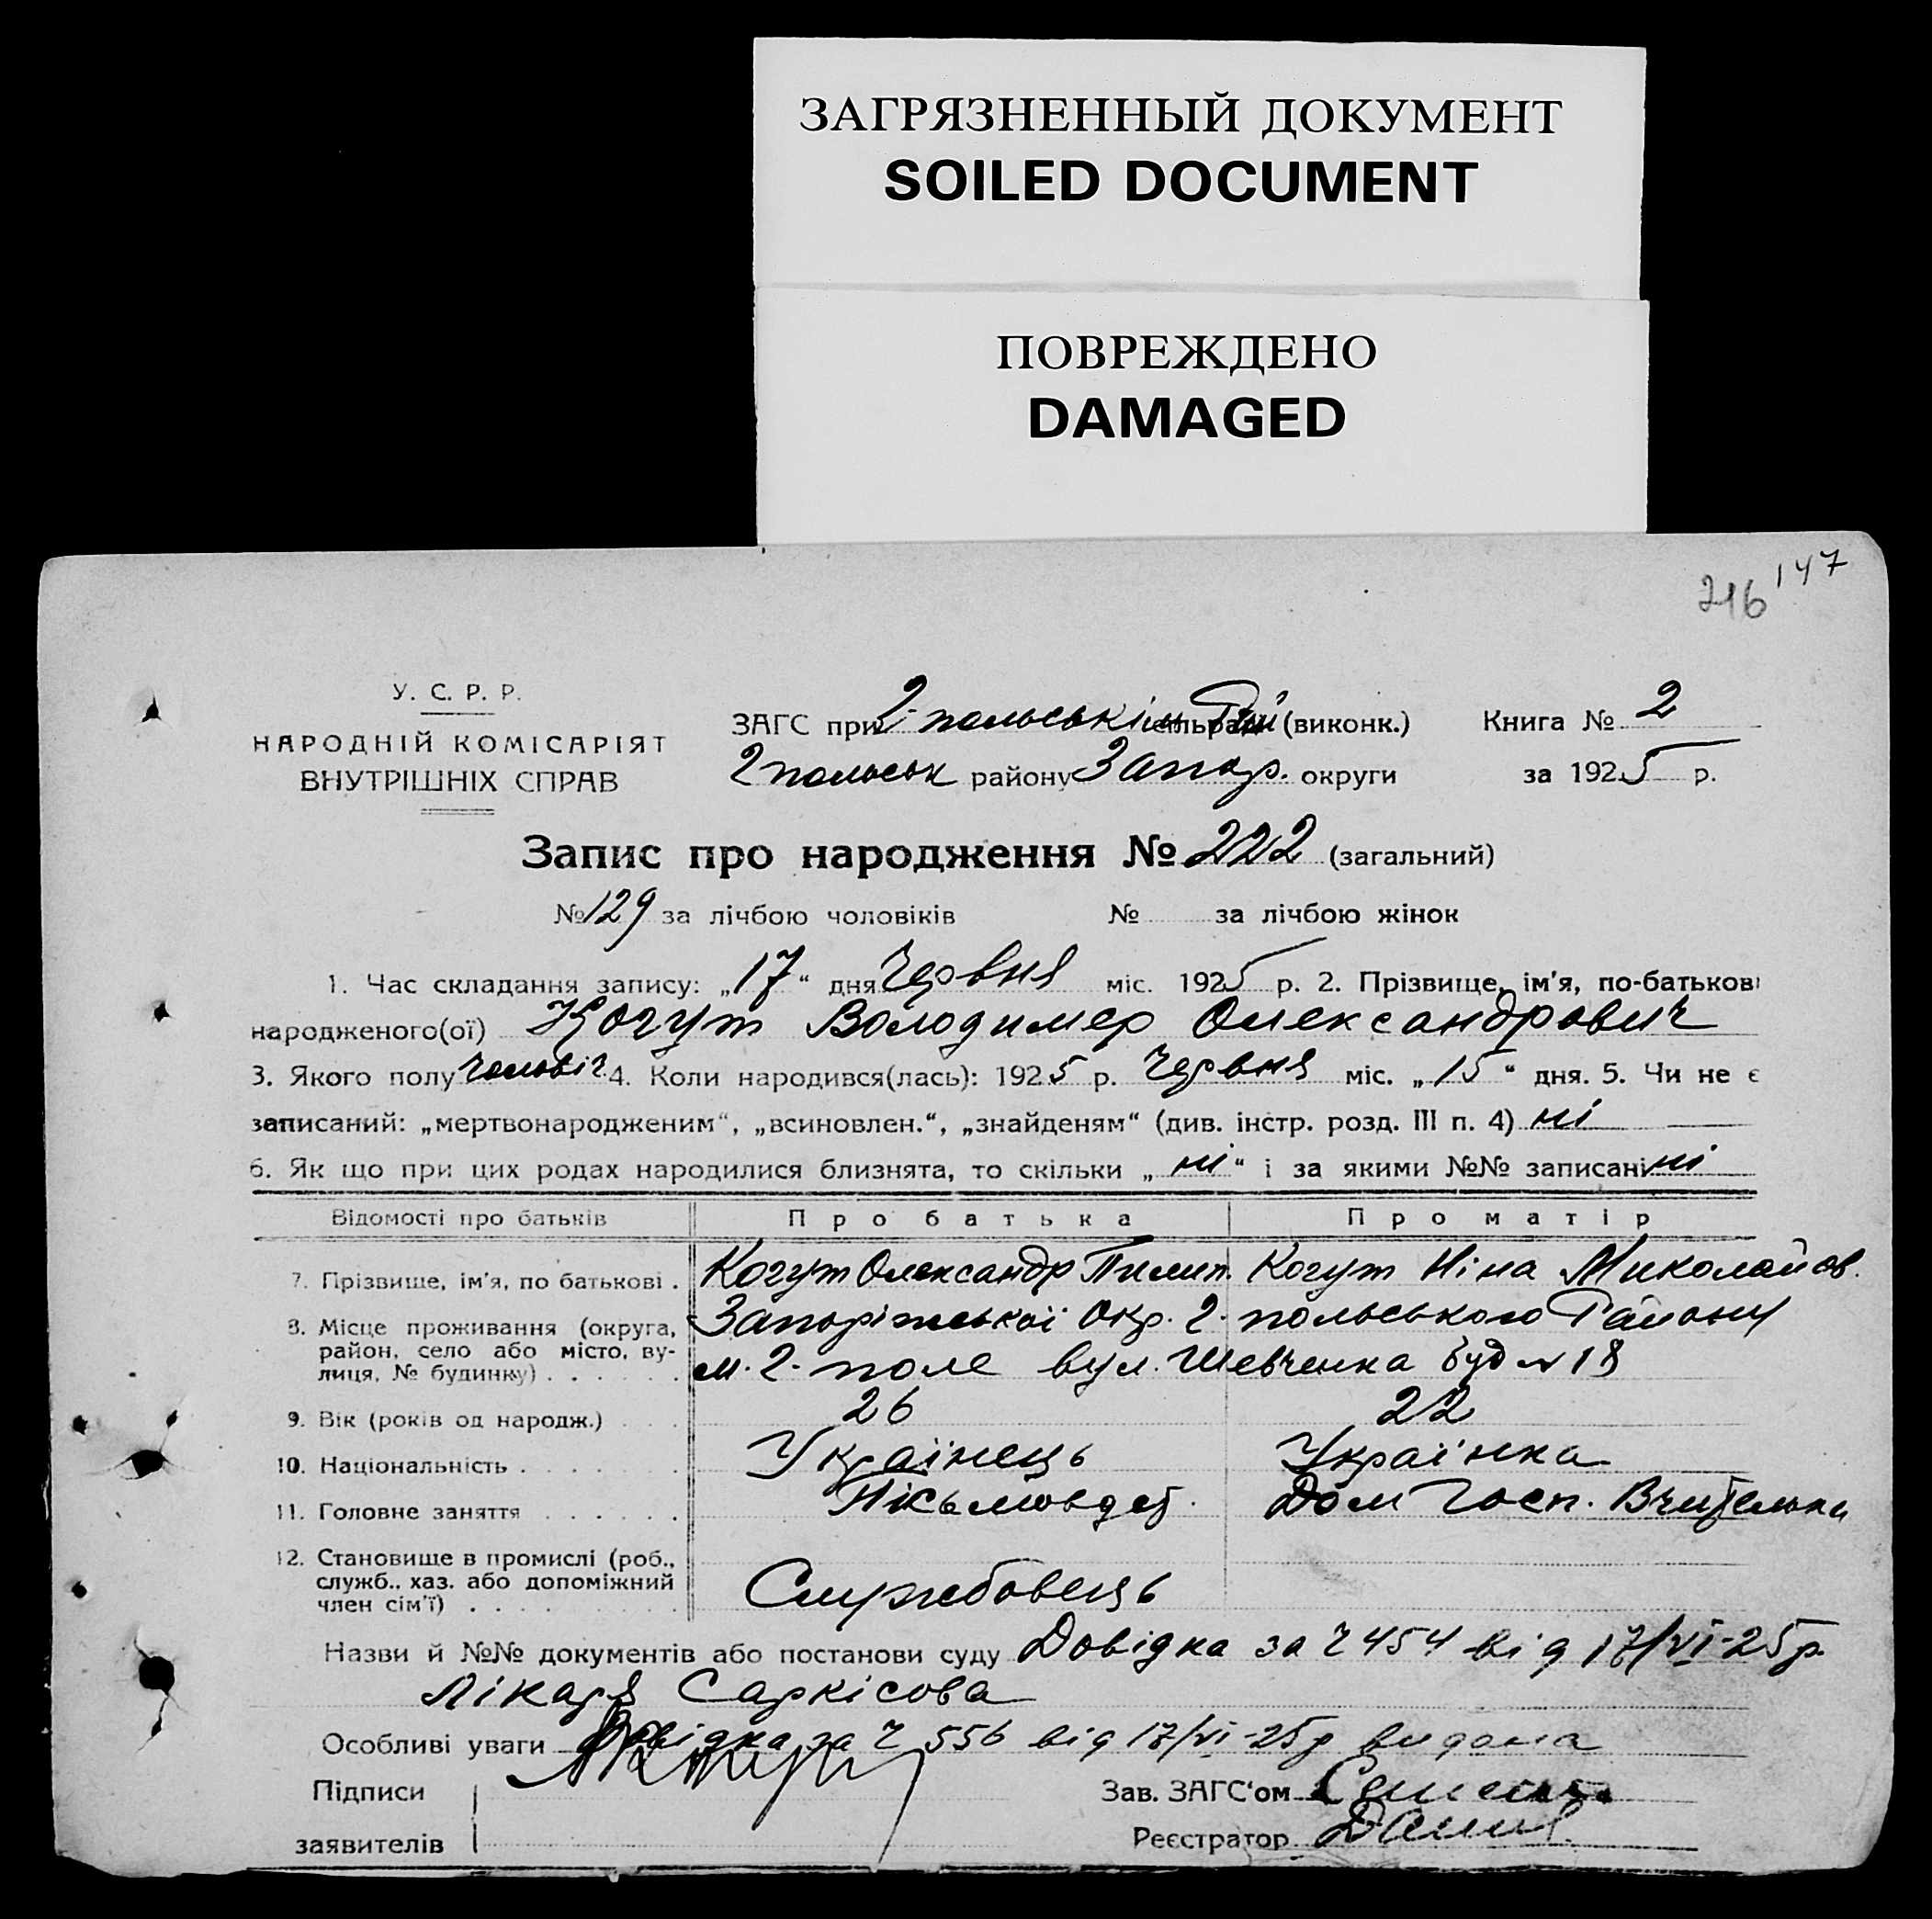 ЗАГРЯЗНЕННЫЙ ДОКУМЕНТ
SOILED DOCUMENT
ПОВРЕЖДЕНО
DAMAGED
216 147
У. С. Р. Р.
НАРОДНІЙ КОМІСАРІЯТ
ВНУТРІШНІХ СПРАВ
ЗАГС при 2-польськім сільраді (виконк.)
2 польськ району Запор. округи
Книга № 2
за 1925 р.
Запис про народження № 222 (загальний)
№ 129 за лічбою чоловіків № за лічбою жінок
1. Час складання запису: „17“ дня Червня міс. 1925 р. 2. Прізвище, ім'я, по-батькові
народженого(ої) Когут Володимер Олександрович
3. Якого полу чоловіч. 4. Коли народився(лась): 1925 р. Червня міс. „15“ дня. 5. Чи не є
записаний: „мертвонародженим“, „всиновлен.“, „знайденям“ (див. інстр. розд. III п. 4) ні
6. Як що при цих родах народилися близнята, то скільки „ні“ і за якими №№ записані ні
Відомості про батьків Про батька Про матір
7. Прізвище, ім'я, по батькові . Когут Олександр Пилип. Когут Ніна Миколайов.
8. Місце проживання (округа, район, село або місто, вулиця, № будинку) . . . . . . Запоріжської Окр. 2-польського Району
м. 2-поле вул. Шевченка буд № 18
9. Вік (років од народж.) . . . 26 22
10. Національність . . . . . . . Українець Українка
11. Головне заняття . . . . . . Пісьмовдет. Дом Госп. Вчителька
12. Становище в промислі (роб., служб., хаз. або допоміжний член сім'ї) . . . . Службовець
Назви й №№ документів або постанови суду Довідка за ч 454 від 17/VI-25р.
Лікаря Саркісова
Особливі уваги Довідка за ч 556 від 17/VI-25р видана
Підписи
заявителів
Зав. ЗАГС'ом
Реєстратор